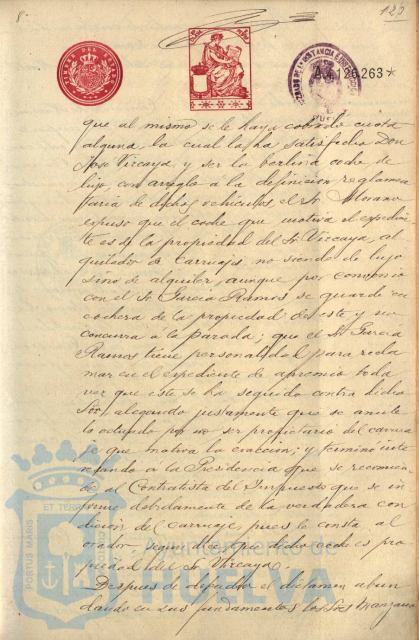 8
123
TIMBRE DEL ESTADO
A4.126.263*
que al mismo se le haya cobrado cuota
alguna, la cual la ha satisfecho Don
Jose Vizcaya, y ser la berlina coche de
lujo, con arreglo á la definicion reglamen
taria de dichos vehiculos, el Sr. Morano
expuso que el coche que motiva el expedien
te es de la propiedad del Sr. Vizcaya, al
quilador de carruajes, no siendo de lujo
sino de alquiler, aunque por convenio
con el Sr. Garcia Ramos se guarde en
cochera de la propiedad de este y no
concurra á la parada; que el Sr. Garcia
Ramos tiene personalidad para recla
mar en el expediente de apremio toda
vez que este se ha seguido contra dicho
Sor, alegando justamente que se anule
lo actuado por no ser propietario del carrua
je que motiva la exaccion; y terminó inte
resando á la Presidencia que se recomien
de al Contratista del Impuesto que se in
forme debidamente de la verdadera con
dicion del carruaje, pues le consta al
orador, segun dice, que dicho coche es pro
piedad del Sr. Vizcaya.
Despues de defendido el dictamen abun
dando en sus fundamentos los Sres. Manzano
PORTUS MARIS ET TERRAE
Ayuntamiento de
HUELVA